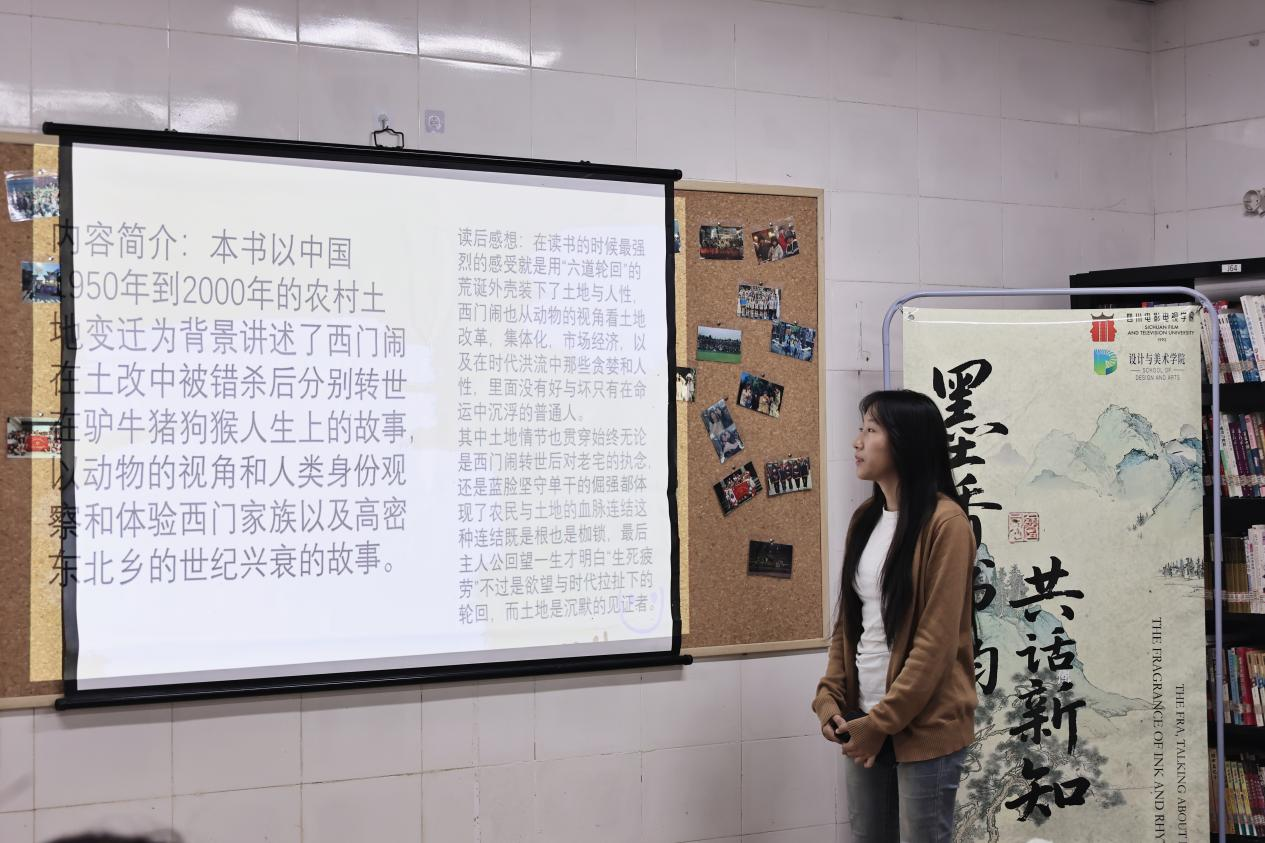 内容简介：本书以中国
1950年到2000年的农村土
地变迁为背景讲述了西门闹
在土改中被错杀后分别转世
在驴牛猪狗猴人生上的故事，
以动物的视角和人类身份观
察和体验西门家族以及高密
东北乡的世纪兴衰的故事。
读后感想：在读书的时候最强
烈的感受就是用“六道轮回”的
荒诞外壳装下了土地与人性，
西门闹也从动物的视角看土地
改革，集体化，市场经济，以
及在时代洪流中那些贪婪和人
性，里面没有好与坏只有在命
运中沉浮的普通人。
其中土地情节也贯穿始终无论
是西门闹转世后对老宅的执念，
还是蓝脸坚守单干的倔强都体
现了农民与土地的血脉连结这
种连结既是根也是枷锁，最后
主人公回望一生才明白“生死疲
劳”不过是欲望与时代拉扯下的
轮回，而土地是沉默的见证者。
J64
四川电影电视学院
SICHUAN FILM
AND TELEVISION UNIVERSITY
设计与美术学院
SCHOOL OF
DESIGN AND ARTS
墨香书韵
共话新知
THE FRAGRANCE OF INK AND RHY
THE FRA, TALKING ABOUT